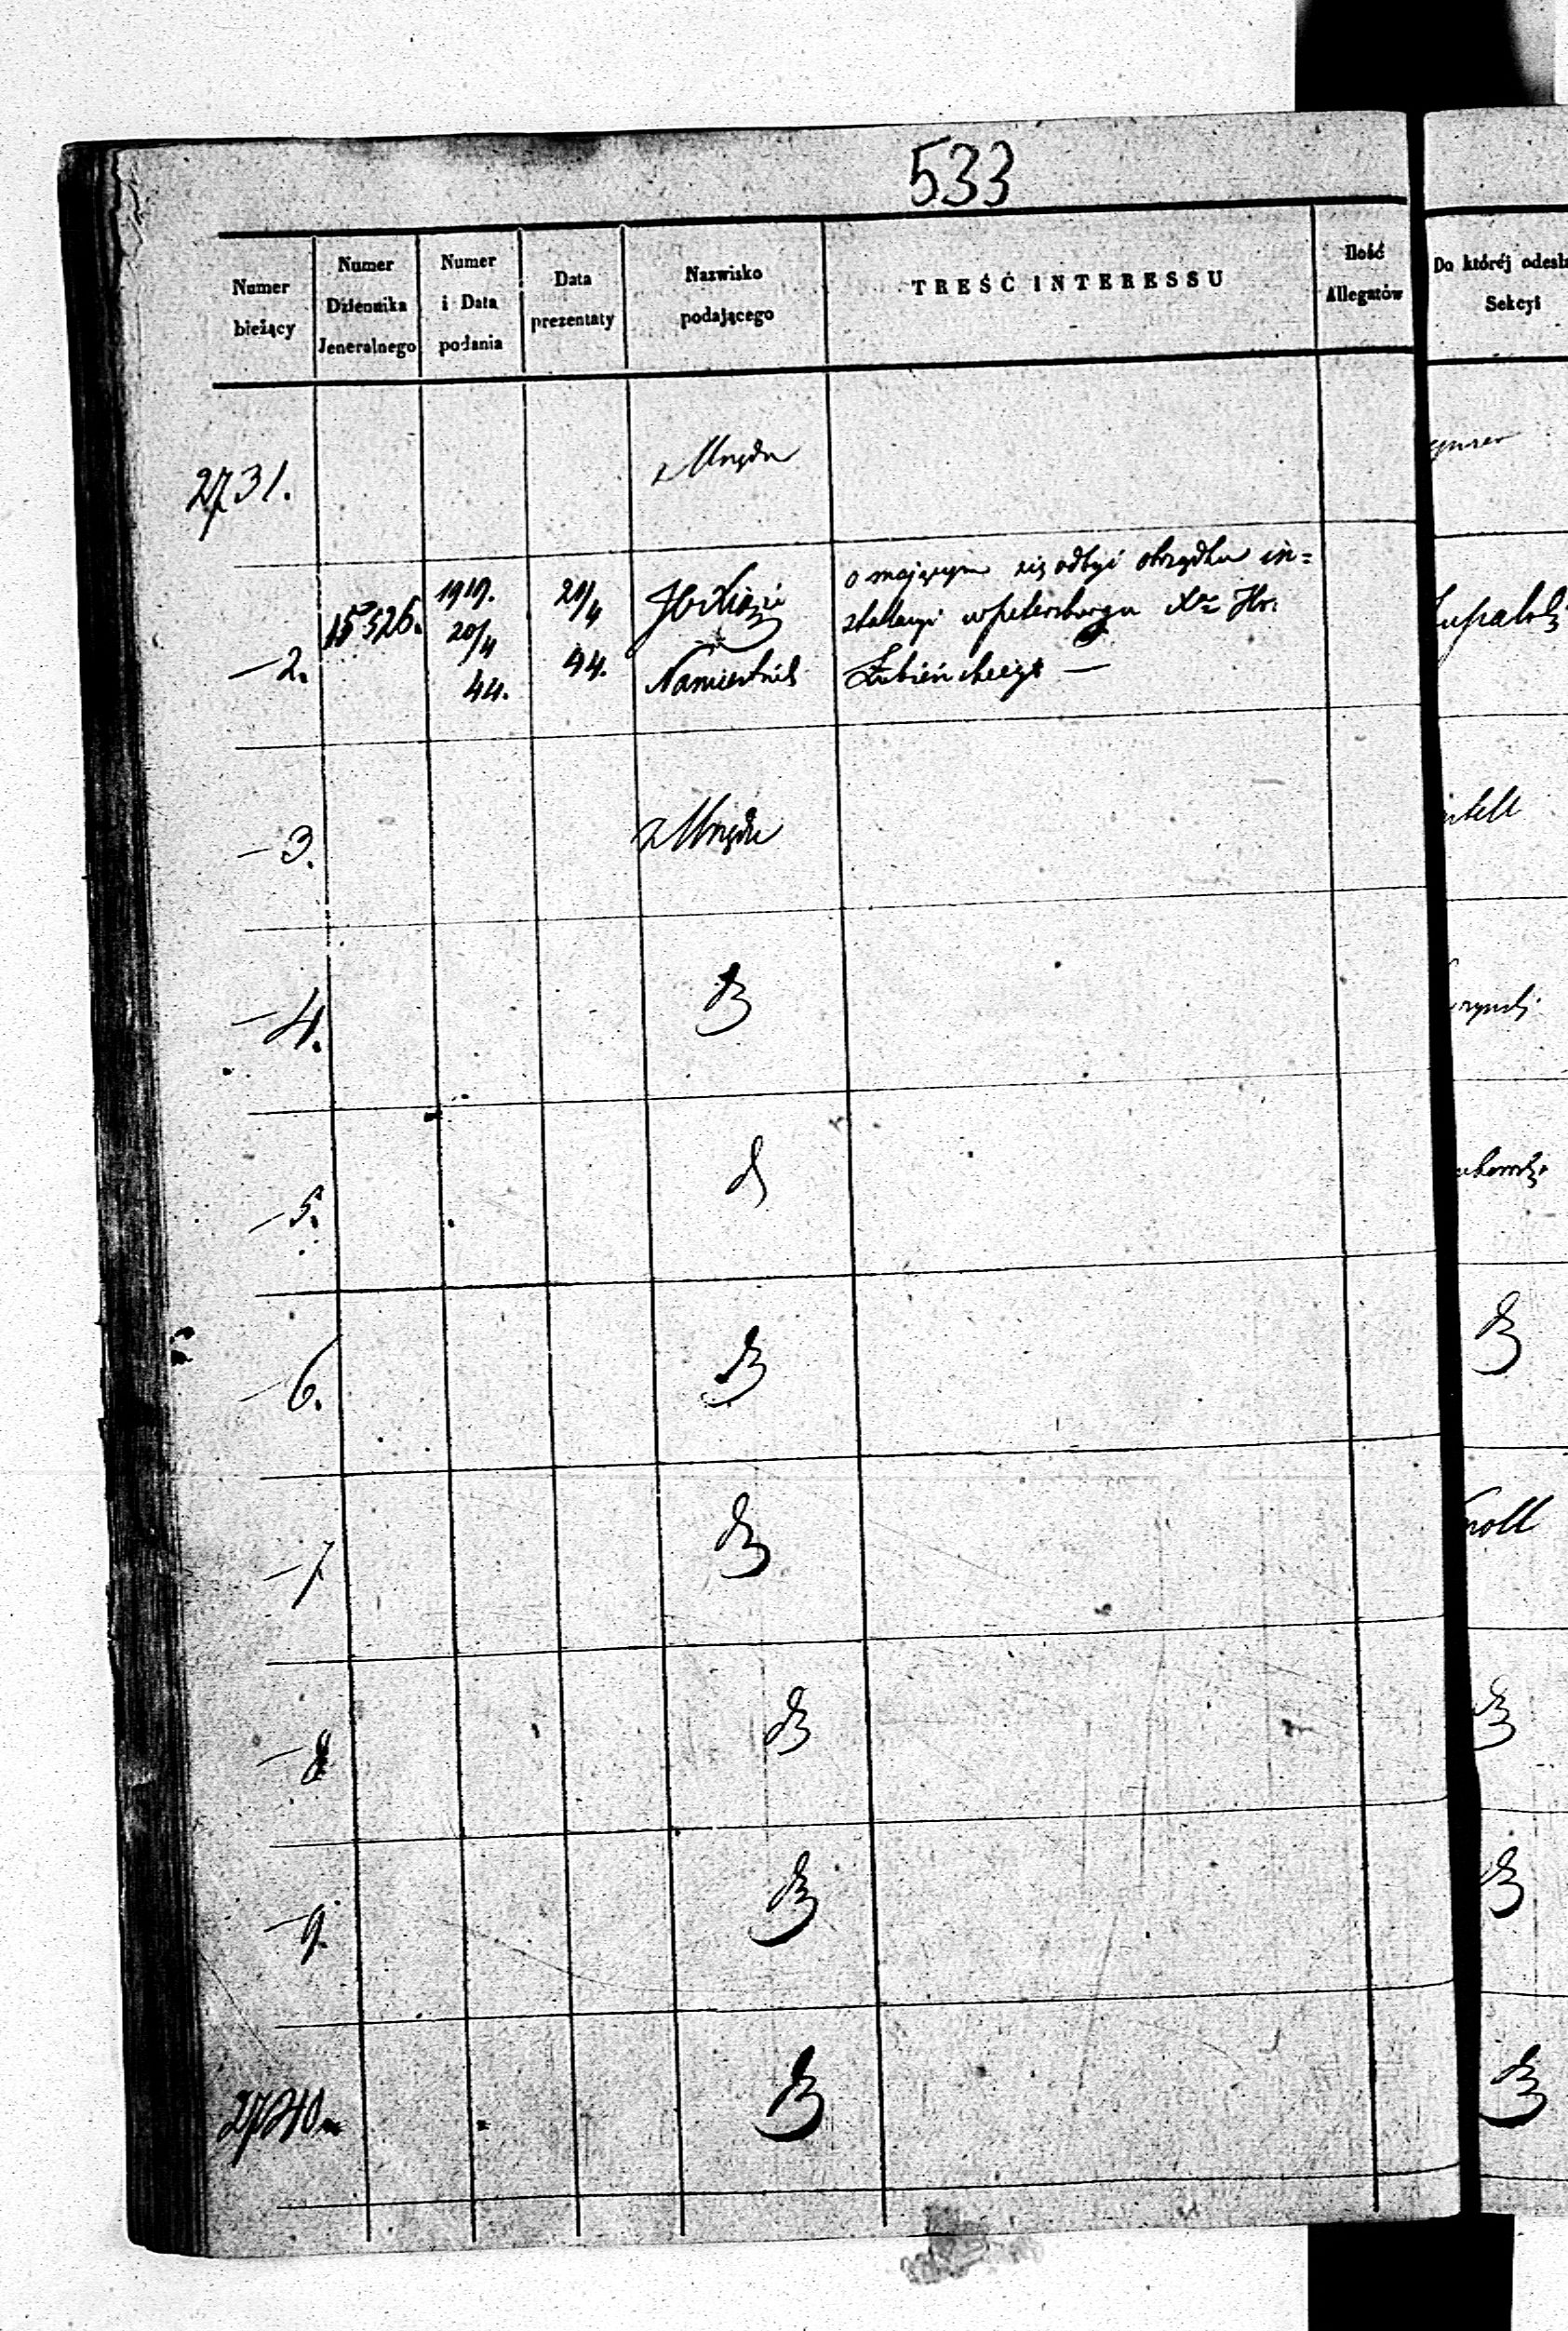 533
Numer bieżący
Numer Dziennika Jeneralnego
Numer i Data podania
Data prezentaty
Nazwisko podającego
TREŚĆ INTERESSU
Ilość Allegatów
Do której odesł
Sekcyi
2731. z Urzędu
—2. 15526. 1919. 20/4 44. 21/4 44. JO Xiąże Namiestnik
o mającym się odbyć obrządku in=
stalacyi w Petersburgu Xa Hr.
Łubieńskiego —
—3. z Urzędu
—4. dto
—5. dto
—6. dto dto
—7. dto
—8. dto dto
—9. dto dto
2740. dto dto